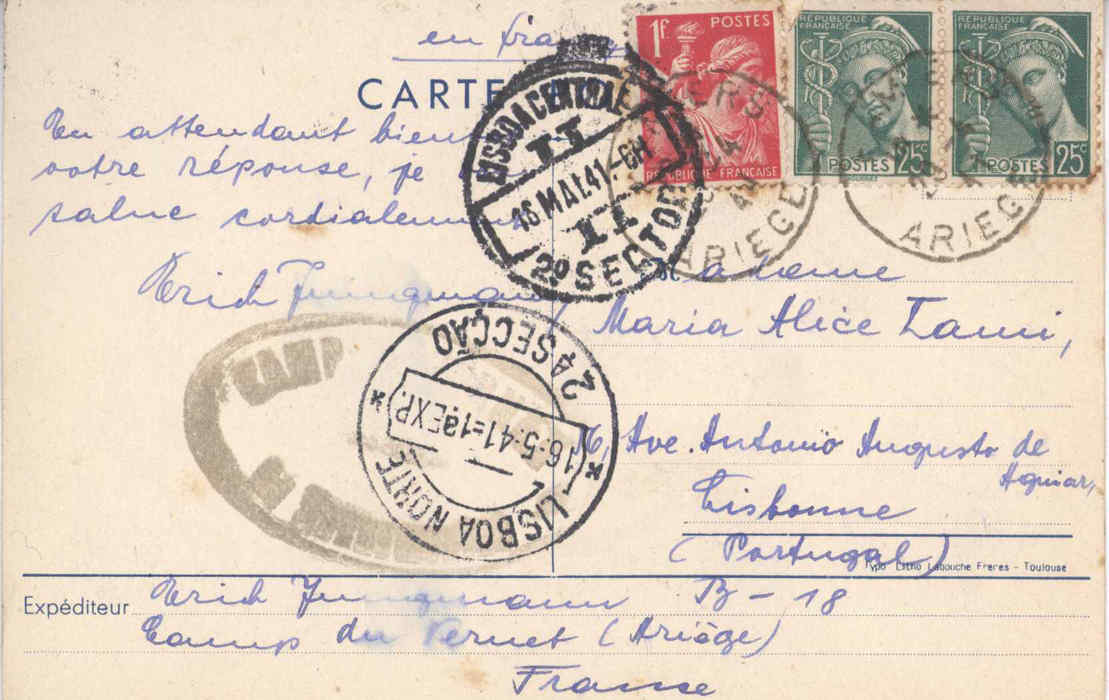 en français
CARTE
En attendant bien
votre réponse, je
salue cordialement
Erich Jungmann
1F POSTES
RÉPUBLIQUE FRANÇAISE
RÉPUBLIQUE FRANÇAISE
POSTES 25c
RÉPUBLIQUE FRANÇAISE
POSTES 25c
ARIEGE
ARIEGE
LISBOA CENTRAL
16 MAI.41.-6H
2º SECTOR
2ª SECÇÃO
16.5.41=1ªEXP.
LISBOA NORTE
CAMP
Madame
Maria Alice Lami,
16, Ave. Antonio Augusto de
Aguiar,
Lisbonne
(Portugal)
Typo Litho Labouche Freres - Toulouse
Expéditeur Erich Jungmann B-18
Camp du Vernet (Ariège)
France